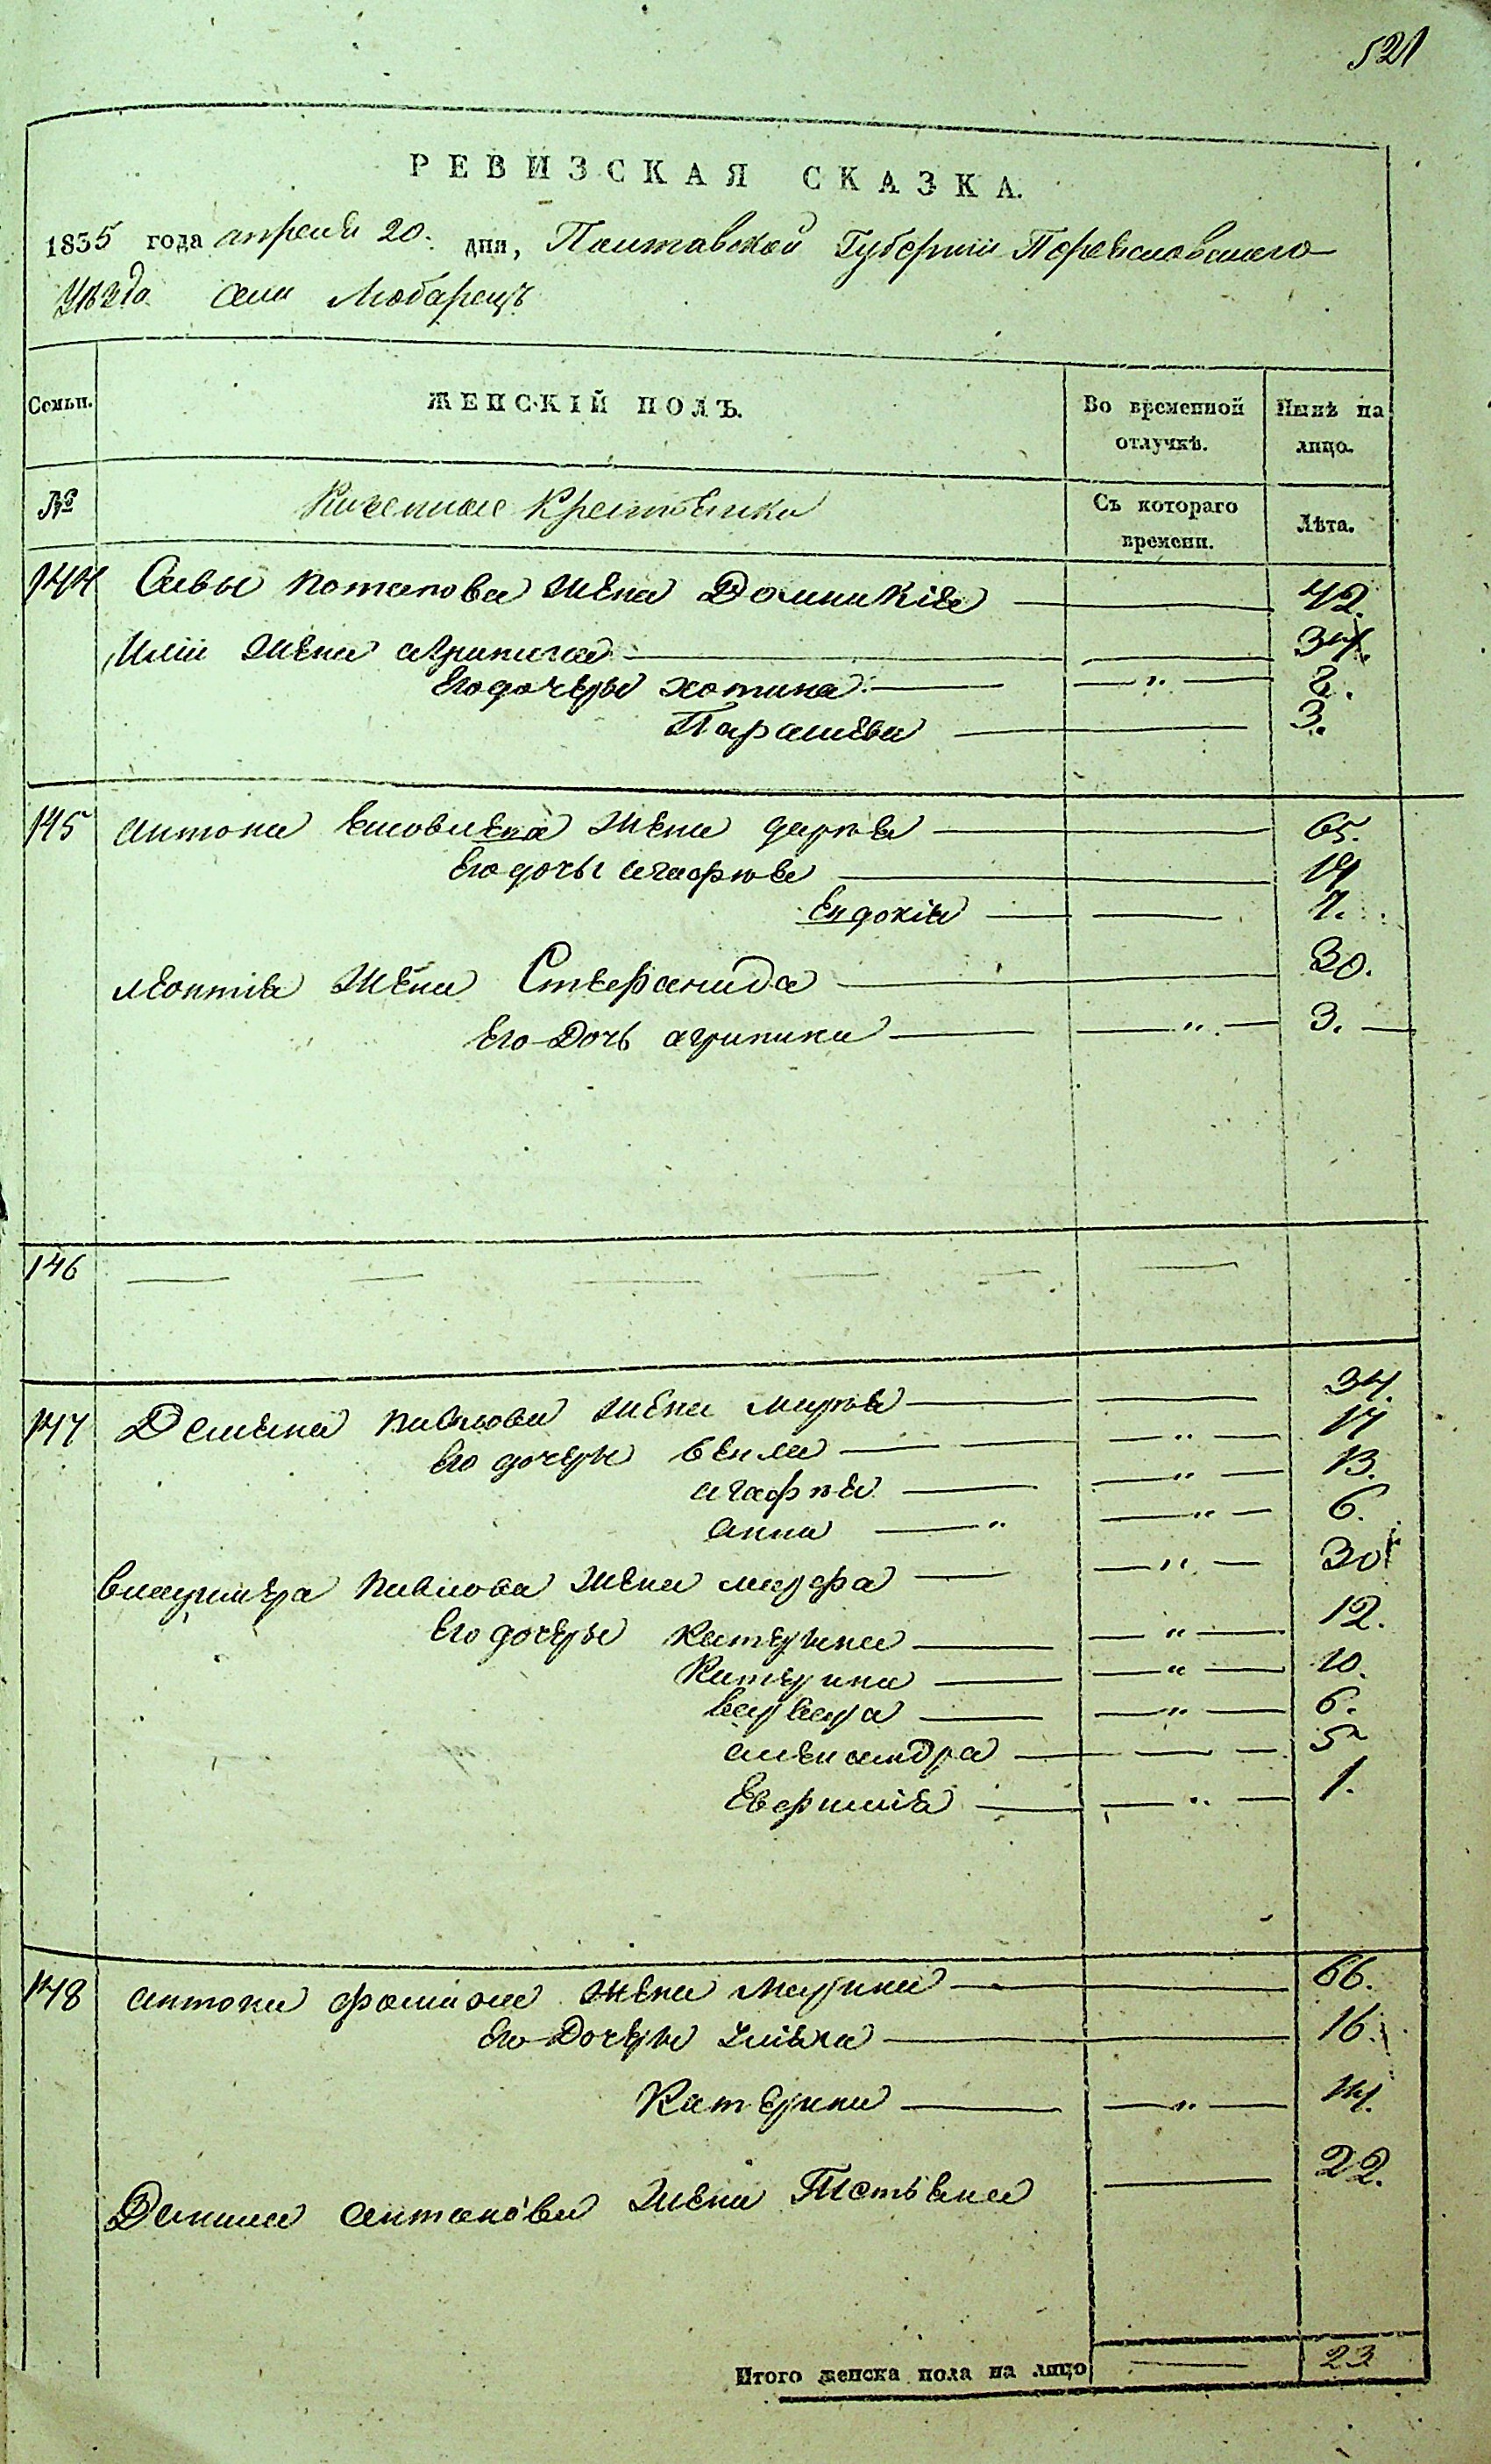 521
РЕВИЗСКАЯ СКАЗКА.
1835 года апреля 20. дня, Полтавской Губернии Переяславского
уѣзда села Любарецъ
Семьи. ЖЕНСКІЙ ПОЛЪ. Во временной отлучкѣ. Нынѣ на лицо.
№ Казенные крестьянки Съ котораго времени. Лѣта.
144 Савы Потапова жена Домникія 42.
Иліи жена Агрипина 34.
Его дочеры хотина 8.
Параскева 3.
145 антона жена дарья 65.
Его дочь агафья 19
Евдокія 7.
леонтія жена Стефанида 30.
Его Дочь агрипина 3.
146
147 Демяна павлова жена марья 34.
Его дочеры Фекла 17
агафья 13.
анна 6.
владимера павлова жена марфа 30
Его дочеры катерина 12.
Катерина 10.
варвара 6.
александра 5
Евфимія 1.
148 антона фомина жена Марина 66.
Его Дочеры уліяна 16.
Катерина 14.
Данила антонова жена Татьяна 22.
Итого женска пола на лицо 23